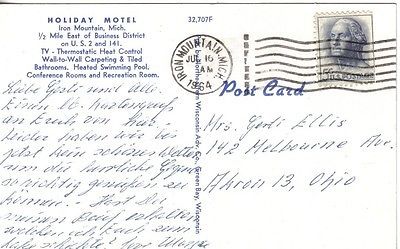 HOLIDAY MOTEL
Iron Mountain, Mich.
½ Mile East of Business District
on U.S. 2 and 141.
TV - Thermostatic Heat Control
Wall-to-Wall Carpeting & Tiled
Bathrooms. Heated Swimming Pool.
Conference Rooms and Recreation Room.
32,707F
Liebe Gerti und Alle.
einen
an Euch von hier.
Leider haben wir bis
jetzt kein schönes Wetter
um die herrliche Gegend
so richtig genießen zu
können. Hast Du
meinen Brief erhalten
welchen ich Euch zum
IRON MOUNTAIN, MICH.
JUL 16
AM
1964
5¢ U.S. POSTAGE
Post Card
Wisconsin Adv. Co., Green Bay, Wisconsin
Mrs. Gerti Ellis
142 Melbourne Ave
Akron 13, Ohio